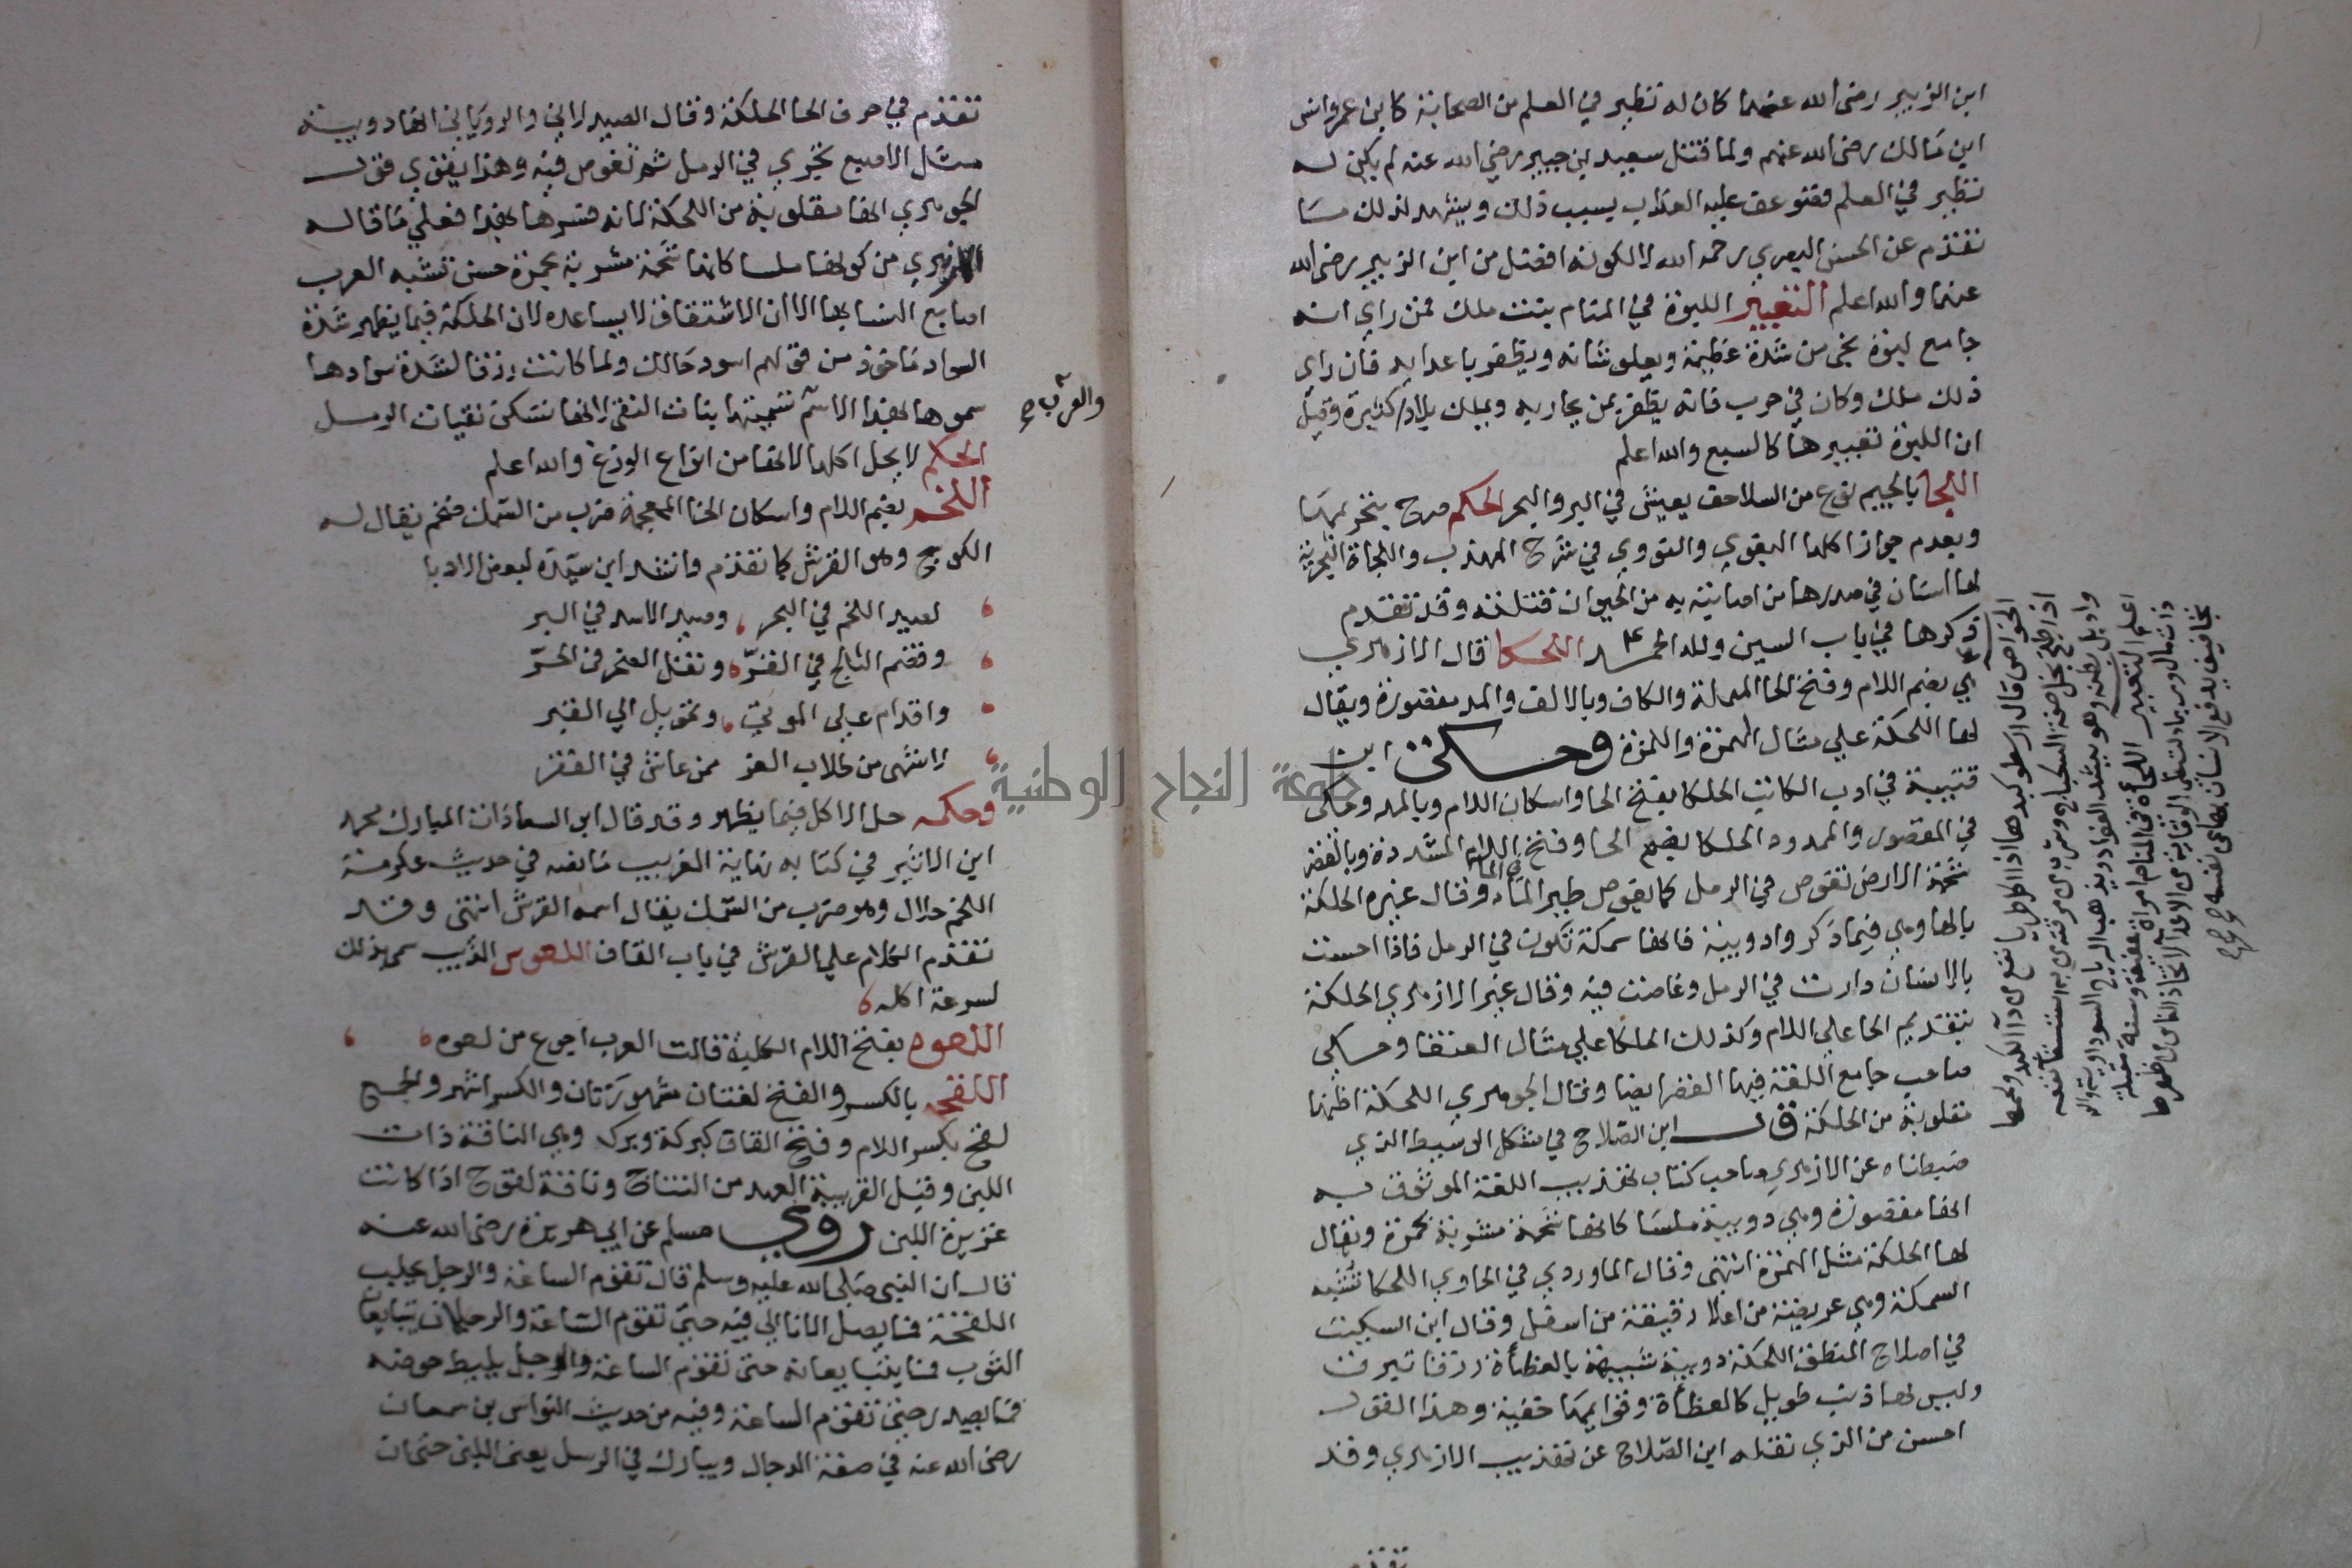 ابن الزبير رضى الله عنهما كان له نظير في العلم من الصحابة كابن عمر وانس
ابن مالك رضى الله عنهم ولما قتل سعيد بن جبير رضي الله عنه لم يكن له
نظير في العلم فضوعف عليه العذاب بسبب ذلك ويشهد لذلك ما
تقدم عن الحسن البصري رحمه الله لا لكونه افضل من ابن الزبير رضى الله
عنهما والله اعلم التعبير اللبوة في المنام بنت ملك فمن راي انه
جامع لبوة نجى من شدة عظيمة ويعلو شانه ويظفر باعدايه فان راي
ذلك ملك وكان في حرب فانه يظفر بمن يحاربه ويملك بلادا كثيرة وقيل
ان اللبوة تعبيرها كالسبع والله اعلم
اللجا بالجيم نوع من السلاحف يعيش في البر والبحر الحكم صرح بتحريمها
وبعدم جواز اكلها البغوي والنووي في شرح المهذب واللجاة البحرية
لها لسان في صدرها من اصابته به من الحيوان قتلته وقد تقدم
ذكرها في باب السين ولله الحمد اللحكا قال الازهري
هي بضم اللام وفتح الحا المهملة والكاف وبالالف والمد مقصورة ويقال
لها اللحكة علي مثال الهمزة واللمزة وحكى ابن
قتيبة في ادب الكاتب الحلكا بفتح الحا واسكان اللام وبالمد وحكى
في المقصور والممدود الحلكا بضم الحا وفتح اللام المشددة وبالقصر
شحمة الارض تغوص في الرمل كما يغوص طير الماء في الماء وقال غيره الحلكة
بالها وهي فيما ذكروا دويبة كانها سمكة تكون في الرمل فاذا احست
بالانسان دارت في الرمل وغاصت فيه وقال غير الازهري الحلكة
بتقديم الحا علي اللام وكذلك الحلكا علي مثال العنقا وحكى
صاحب جامع اللغة فيها القصر ايضا وقال الجوهري اللحكة اظنها
مقلوبة من الحلكة قال ابن الصلاح في مشكل الوسيط الذي
ضبطناه عن الازهري صاحب كتاب تهذيب اللغة الموثوق به
انها مقصورة وهي دويبة ملسا كانها شحمة مشوبة بحمرة ويقال
لها الحلكة مثل الهمزة انتهى وقال الماوردي في الحاوي اللحكا تشبه
السمكة وهي عريضة من اعلا دقيقة من اسفل وقال ابن السكيت
في اصلاح المنطق اللحكة دويبة شبيهة بالعظأة زرقا تبرق
وليس لها ذنب طويل كالعظأة وقوايمها خفية وهذا القول
احسن من الذي نقله ابن الصلاح عن تهذيب الازهري وقد
الخواص قال ارسطو كبدها اذا اكل طريا نفع من دآ الكبد ولحمها
اعلم التعبير اللجاة في المنام امراة عفيفة وسنة مقبلة
تقدم في حرف الحا الحلكة وقال الصيدلاني والروياني انها دويبة
مثل الاصبع تجري في الرمل ثم تغوص فيه وهذا يقوي قول
الجوهري انها مقلوبة من اللحكة لانه فسرها بهذا فعلي ما قاله
الازهري من كونها ملسا كانها شحمة مشربة بحمرة حسن تشبه العرب
اصابع النسا بها الا ان الاشتقاق لا يساعده لان الحلكة فيما يظهر شدة
السواد ماخوذ من قولهم اسود حالك ولما كانت زرقا لشدة سوادها
سموها بهذا الاسم تسميتها بنات النقى لانها تسكن نقيات الرمل
والعرب
الحكم لا يحل اكلها لانها من انواع الوزغ والله اعلم
اللخم بضم اللام واسكان الخا المعجمة ضرب من السمك ضخم يقال له
الكوسج وهو القرش كما تقدم وانشد ابن سيده لبعض الادبا
لصيد اللخم في البحر وصيد الاسد في البر
وقضم الثلج في القر ونقل الصخر في الحر
واقدام علي الموت وتحويل الي القبر
لاشهى من طلاب العز ممن عاش في الفقر
وحكمه حل الاكل فيما يظهر وقد قال ابن السعادات المبارك محمد
ابن الاثير في كتابه نهاية الغريب ما نصه في حديث عكرمة
اللخم حلال وهو ضرب من السمك يقال اسمه القرش انتهى وقد
تقدم الكلام علي القرش في باب القاف اللعوس الذيب سمى بذلك
لسرعة اكله
اللعوه بفتح اللام الكلبة قالت العرب اجوع من لعوه
اللقحه بالكسر والفتح لغتان مشهورتان والكسر اشهر والجمع
لقح بكسر اللام وفتح القاف كبركة وبرك وهي الناقة ذات
اللبن وقيل القريبة العهد من النتاج وناقة لقوح اذا كانت
غزيرة اللبن روي مسلم عن ابي هريرة رضى الله عنه
قال ان النبي صلى الله عليه وسلم قال تقوم الساعة والرجل يحلب
اللقحة فما يصل الانا الي فيه حتي تقوم الساعة والرجلان يتبايعان
الثوب فما يتبايعانه حتى تقوم الساعة والرجل يليط حوضه
فما يصدر حتى تقوم الساعة وفيه من حديث النواس بن سمعان
رضى الله عنه في صفة الدجال ويبارك في الرسل يعنى اللبن حتى ان
جامعة النجاح الوطنية